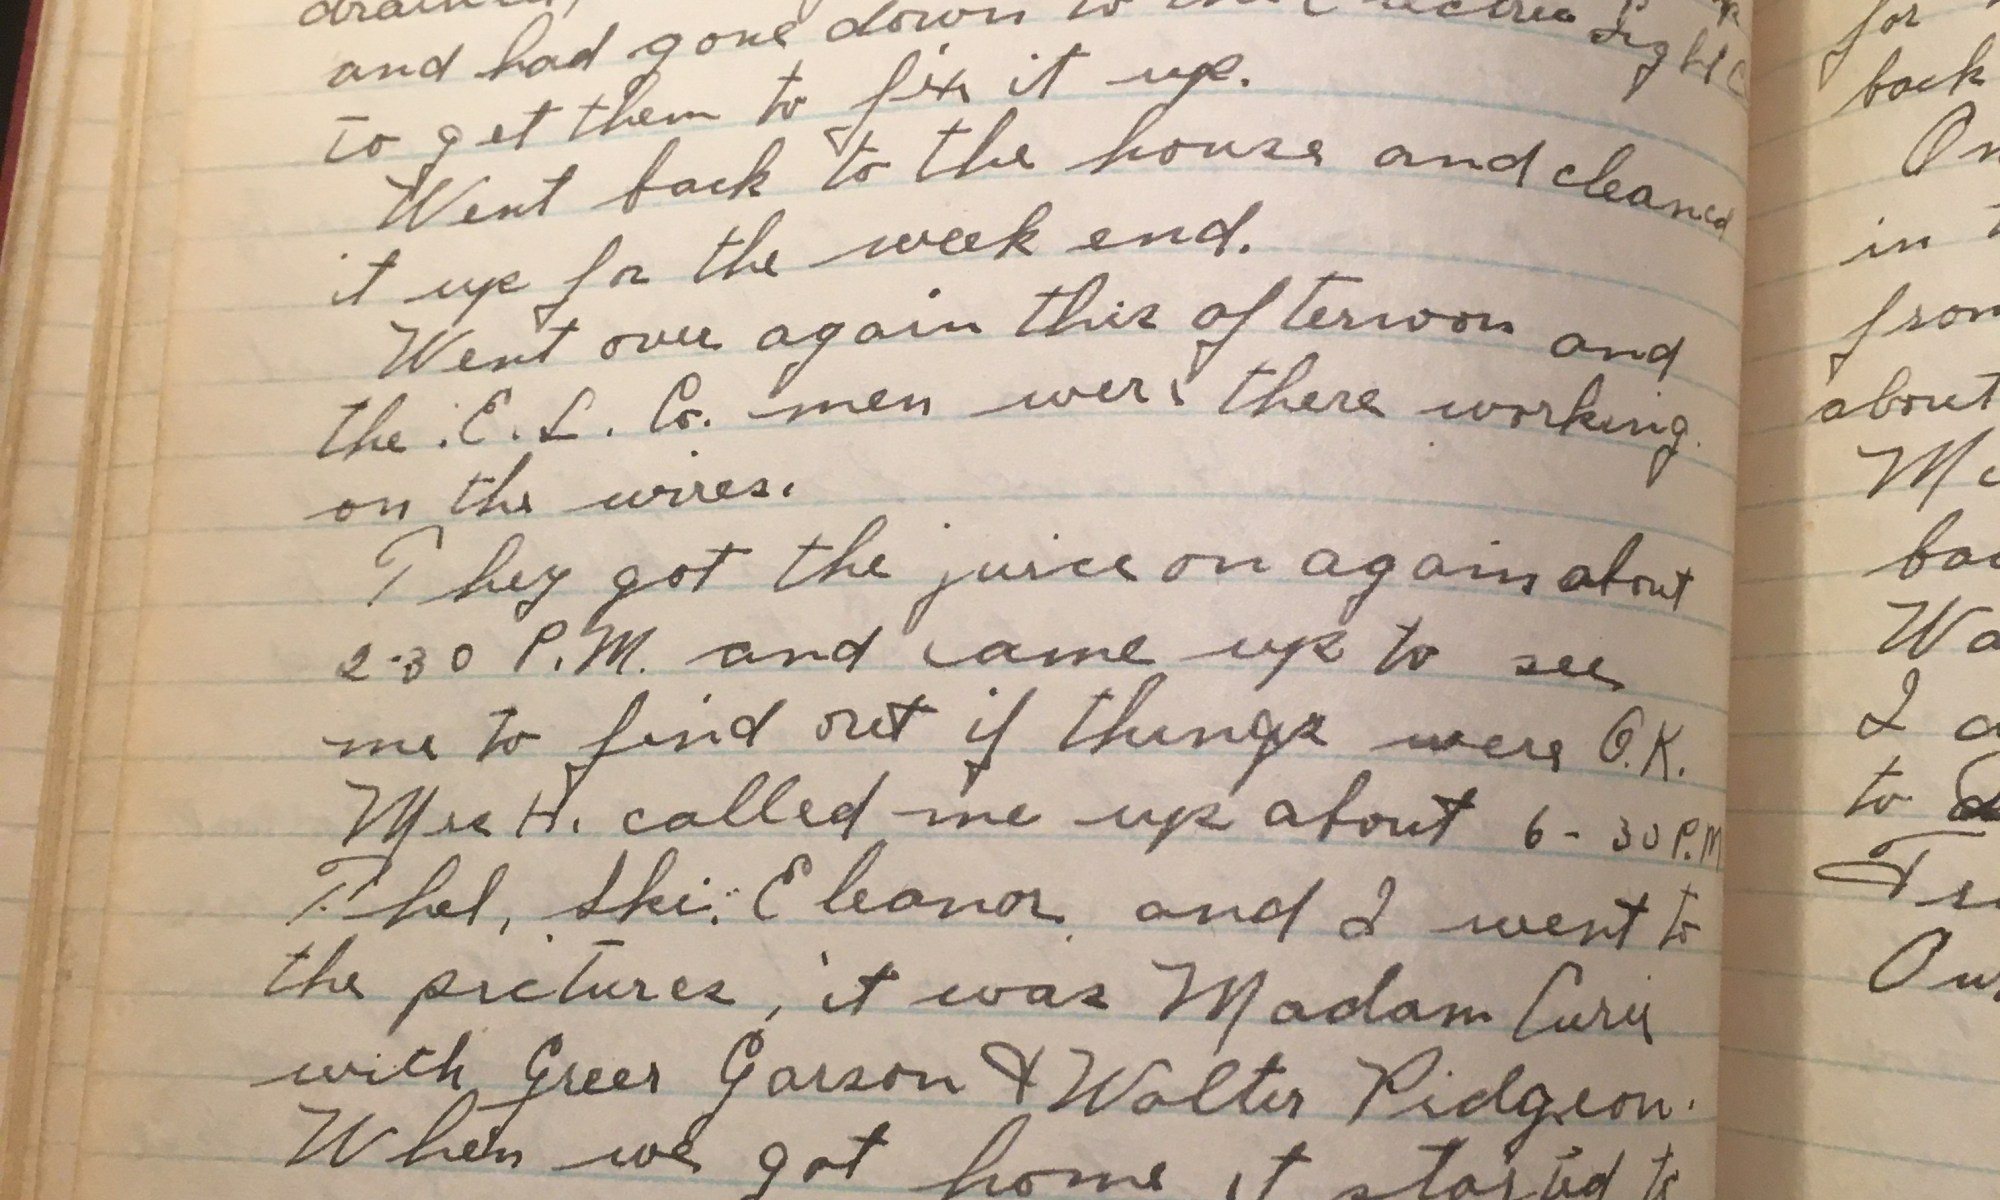 and had gone down to the Electric Light
to get them to fix it up.
Went back to the house and cleaned
it up for the week end.
Went over again this afternoon and
the E. L. Co. men were there working
on the wires.
They got the juice on again about
2-30 P.M. and came up to see
me to find out if things were O.K.
Mrs H. called me up about 6-30 P.M
Thel, Ski, Eleanor and I went to
the pictures, it was Madam Curie
with Greer Garson & Walter Pidgeon.
When we got home it started to
for
back
in
from
about
to